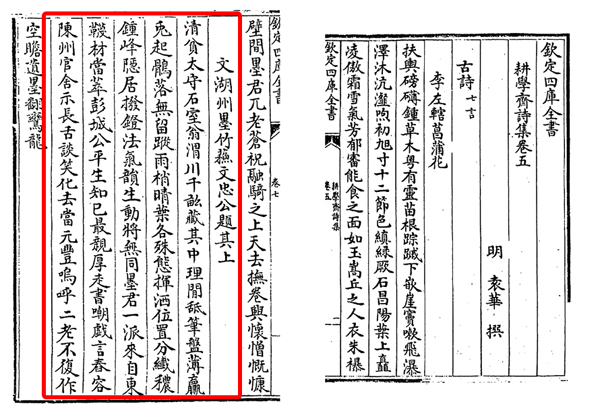 欽定四庫全書
耕學齋詩集卷五
明 袁華 撰
古詩七言
李左轄菖蒲花
扶輿磅礴鍾草木粵有靈苗根踪䠞下敧崖竇嗽飛瀑
澤沐沆瀣呴初旭寸十二節色縝緑厥石昌陽葉上矗
凌傲霜雪氣芳郁審能食之面如玉嵩丘之人衣朱襮
欽定四庫全書
耕學齋詩集
卷五
一
欽定四庫全書
卷七
壁間墨君兀老蒼祝融騎之上天去撫卷興懷憎慨慷
文湖州墨竹蘇文忠公題其上
清貧太守石室翁渭川千畝藏其中理閒舐筆盤薄羸
兎起鶻落無留蹤雨梢晴葉各殊態揮洒位置分纖穠
鍾峰隠居撥鐙法氣韻生動將無同墨君一派來自東
韈材當萃彭城公平生知已最親厚走書嘲戲言舂容
陳州官舍示長舌談笑化去當元豐嗚呼二老不復作
空瞻遺墨翻驚龍